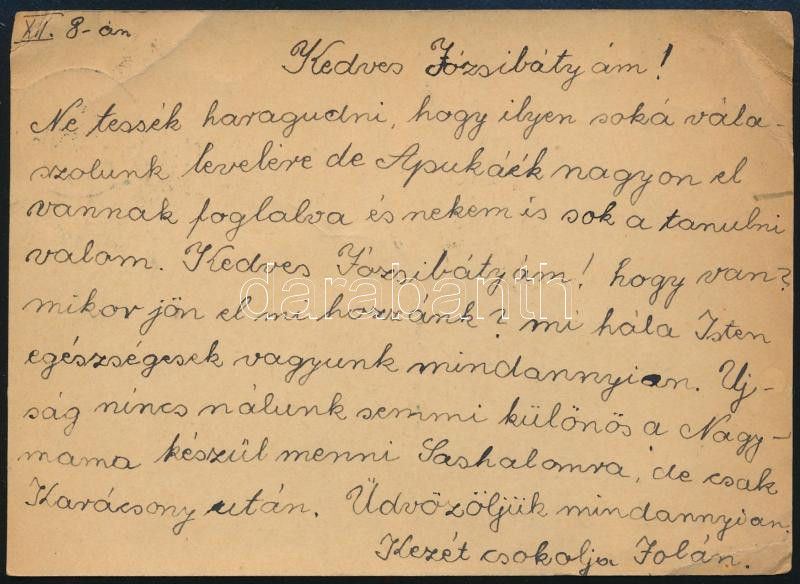 XII. 8-án
Kedves Józsibátyám!
Ne tessék haragudni, hogy ilyen soká vála-
szolunk levelére de Apukáék nagyon el
vannak foglalva és nekem is sok a tanulni
valom. Kedves Józsibátyám! hogy van?
darabanth
mikor jön el mi hozzánk? mi hála Isten
egészségesek vagyunk mindannyian. Uj-
ság nincs nálunk semmi különös a Nagy-
mama készül menni Sashalomra, de csak
Karácsony után. Üdvözöljük mindannyian.
Kezét csokolja Jolán.